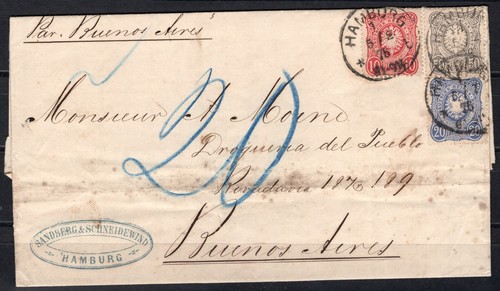 Par "Buenos Aires"
HAMBURG
10
20
Monsieur A Moine
Drogueria del Pueblo
Rivadavia 187 & 189
Buenos Aires
20
SANDBERG & SCHNEIDEWIND
HAMBURG